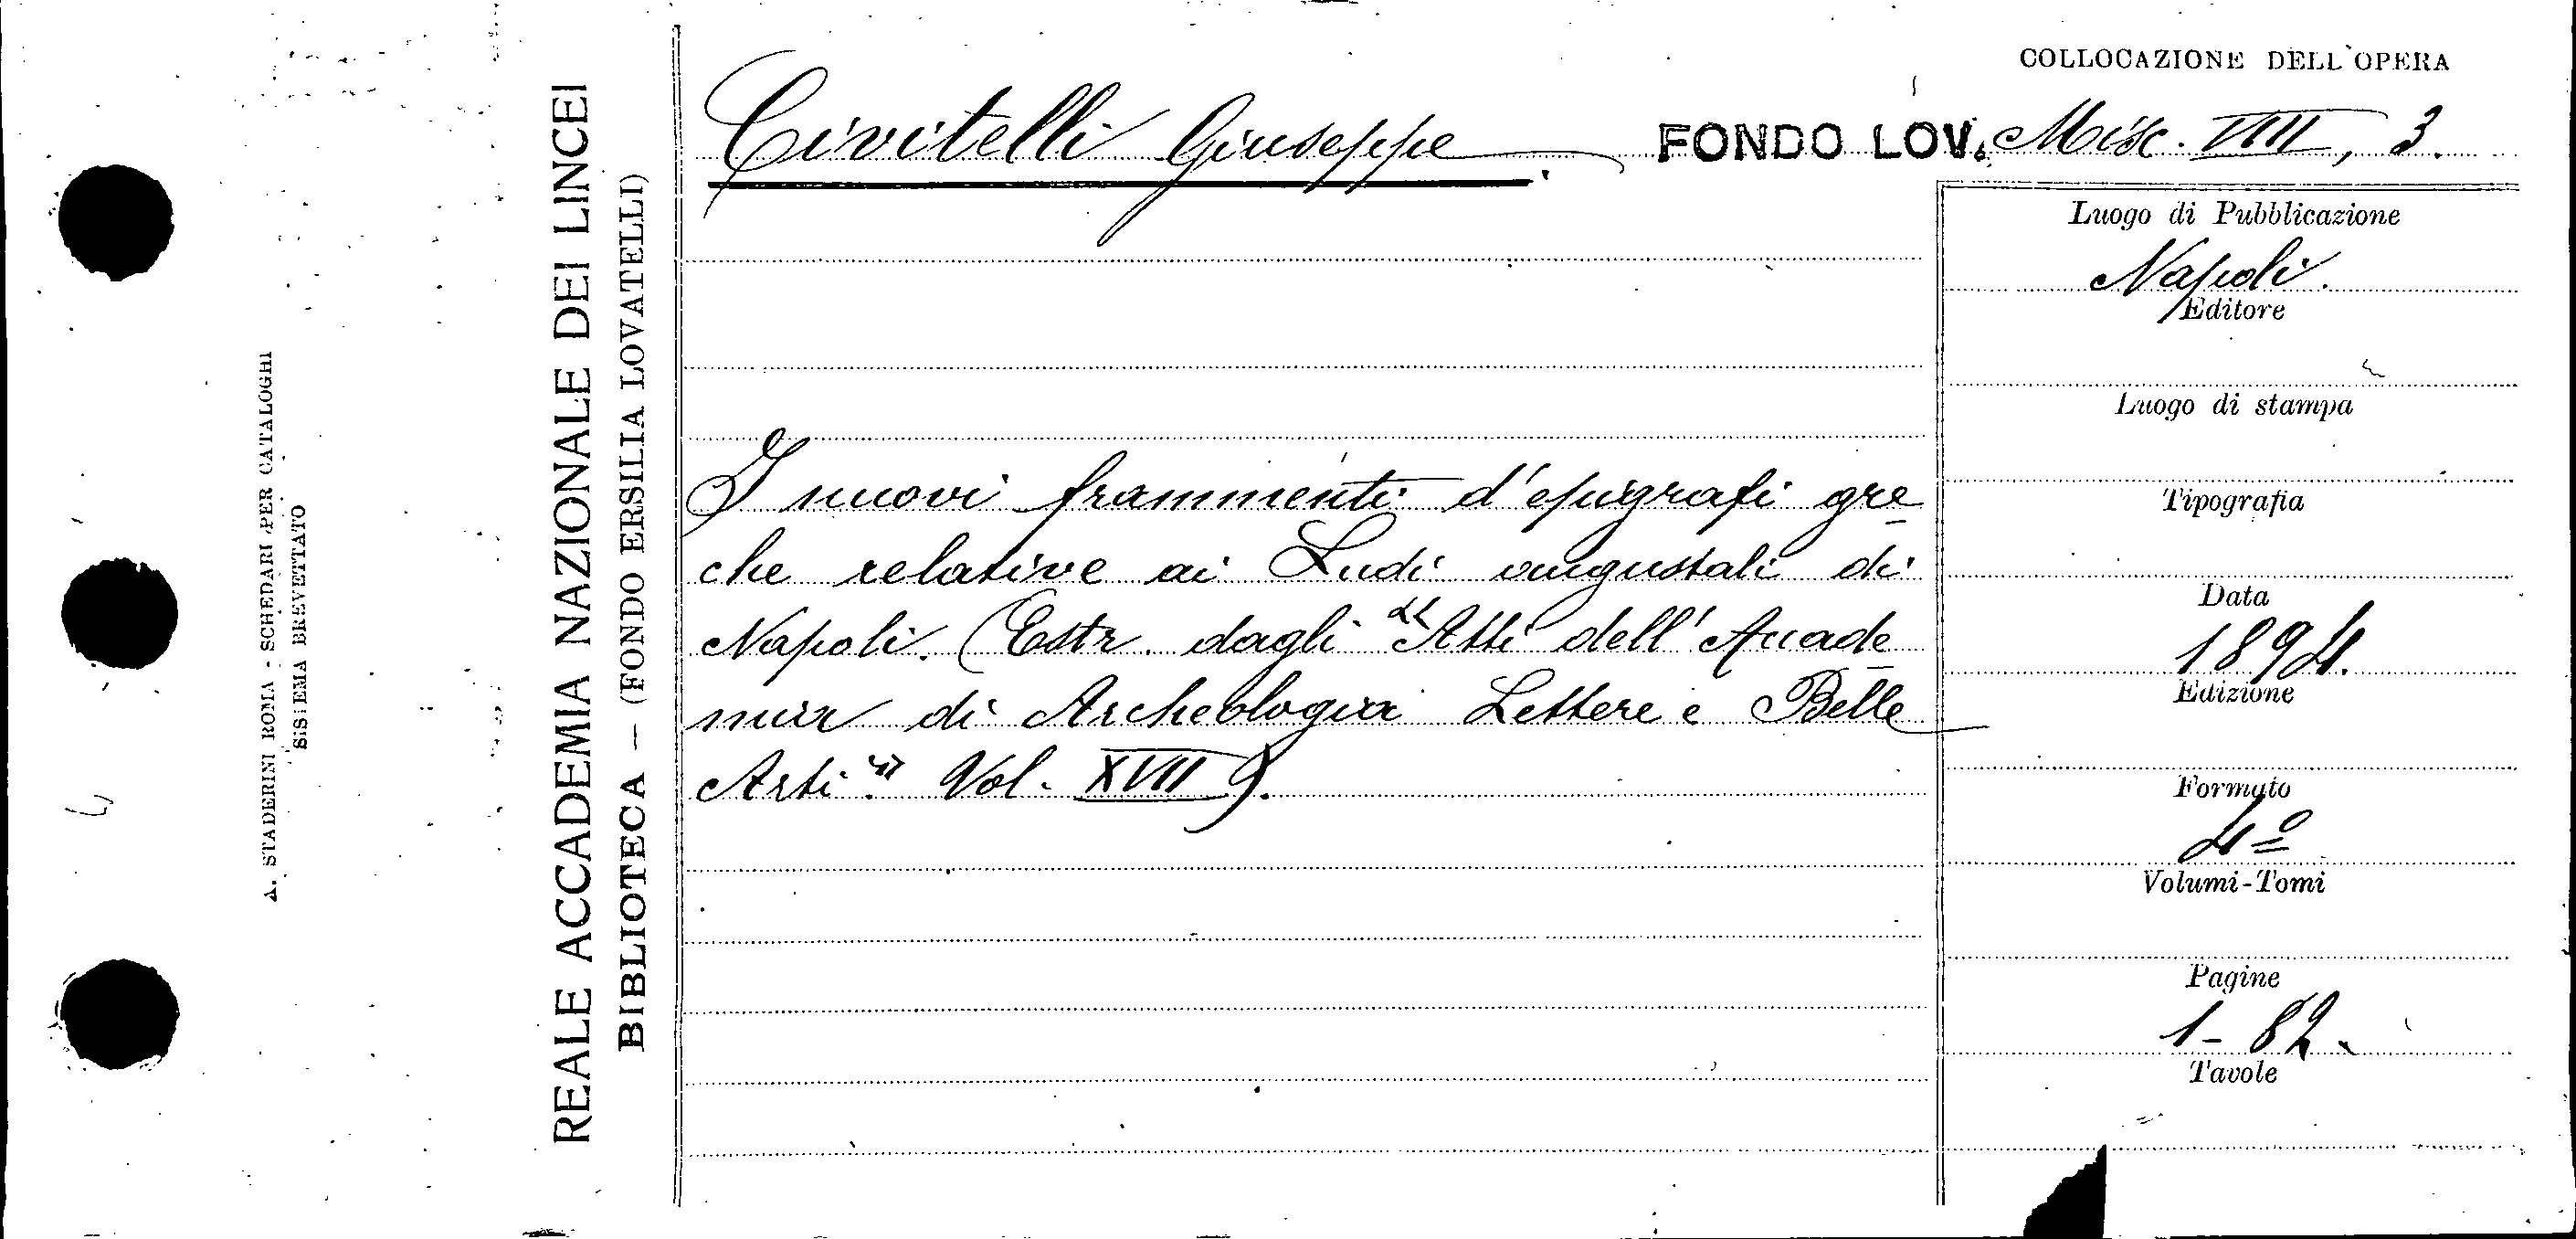 A. STADERINI ROMA - SCHEDARI PER CATALOGHI
SISTEMA BREVETTATO
REALE ACCADEMIA NAZIONALE DEI LINCEI
BIBLIOTECA — (FONDO ERSILIA LOVATELLI)
COLLOCAZIONE DELL'OPERA
Civitelli Giuseppe. FONDO LOV. Misc. VIII, 3.
Luogo di Pubblicazione
Napoli.
Editore
Luogo di stampa
Tipografia
Data
1894.
Edizione
Formato
4º
Volumi-Tomi
Pagine
1-82.
Tavole
I nuovi frammenti d'epigrafi gre
che relative ai Ludi augustali di
Napoli. (Estr. dagli "Atti dell'Accade
mia di Archeologia Lettere e Belle
Arti" Vol. XVII).